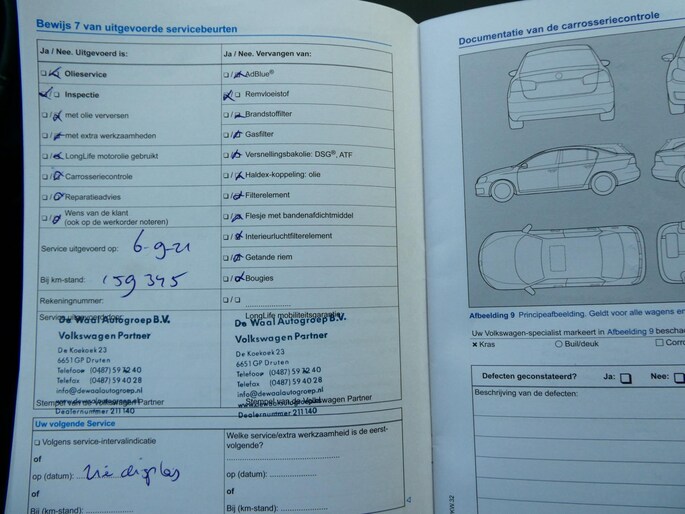 Bewijs 7 van uitgevoerde servicebeurten
Ja / Nee. Uitgevoerd is:
☐/☒ Olieservice
☒/☐ Inspectie
☐/☒ met olie verversen
☐/☒ met extra werkzaamheden
☐/☒ LongLife motorolie gebruikt
☐/☒ Carrosseriecontrole
☐/☒ Reparatieadvies
☐/☒ Wens van de klant
(ook op de werkorder noteren)
Service uitgevoerd op: 6-9-21
Bij km-stand: 159345
Rekeningnummer:
De Waal Autogroep B.V.
Volkswagen Partner
De Koekoek 23
6651 GP Druten
Telefoon (0487) 59 32 40
Telefax (0487) 59 40 28
info@dewaalautogroep.nl
www.dewaalautogroep.nl
Stempel van de Volkswagen Partner
Dealernummer 211140
Ja / Nee. Vervangen van:
☐/☒ AdBlue®
☒/☐ Remvloeistof
☐/☒ Brandstoffilter
☐/☒ Gasfilter
☐/☒ Versnellingsbakolie: DSG®, ATF
☐/☒ Haldex-koppeling: olie
☐/☒ Filterelement
☐/☒ Flesje met bandenafdichtmiddel
☐/☒ Interieurluchtfilterelement
☐/☒ Getande riem
☐/☒ Bougies
☐/☐ ....................
LongLife mobiliteitsgarantie
De Waal Autogroep B.V.
Volkswagen Partner
De Koekoek 23
6651 GP Druten
Telefoon (0487) 59 32 40
Telefax (0487) 59 40 28
info@dewaalautogroep.nl
www.dewaalautogroep.nl
Stempel van de Volkswagen Partner
Dealernummer 211140
Uw volgende Service
☐ Volgens service-intervalindicatie
of
op (datum): zie display
of
Bij (km-stand):
Welke service/extra werkzaamheid is de eerst-
volgende?
op (datum):
of
Bij (km-stand):
4
Documentatie van de carrosseriecontrole
Afbeelding 9 Principeafbeelding. Geldt voor alle wagens
Uw Volkswagen-specialist markeert in Afbeelding 9
x Kras ○ Buil/deuk ☐
Defecten geconstateerd? Ja: ☐ Nee: ☐
Beschrijving van de defecten: